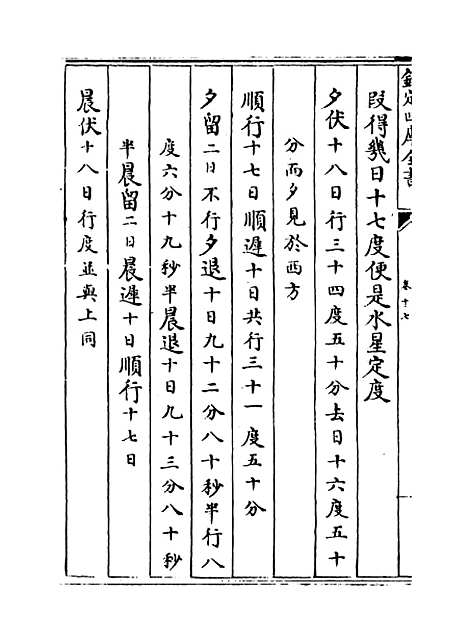 欽定四庫全書
卷十七
段得幾日十七度便是水星定度
夕伏十八日行三十四度五十分去日十六度五十
分而夕見於西方
順行十七日順遲十日共行三十一度五十分
夕留二日不行夕退十日九十二分八十秒半行八
度六分十九秒半晨退十日九十三分八十秒
半晨留二日晨遲十日順行十七日
晨伏十八日行度並與上同